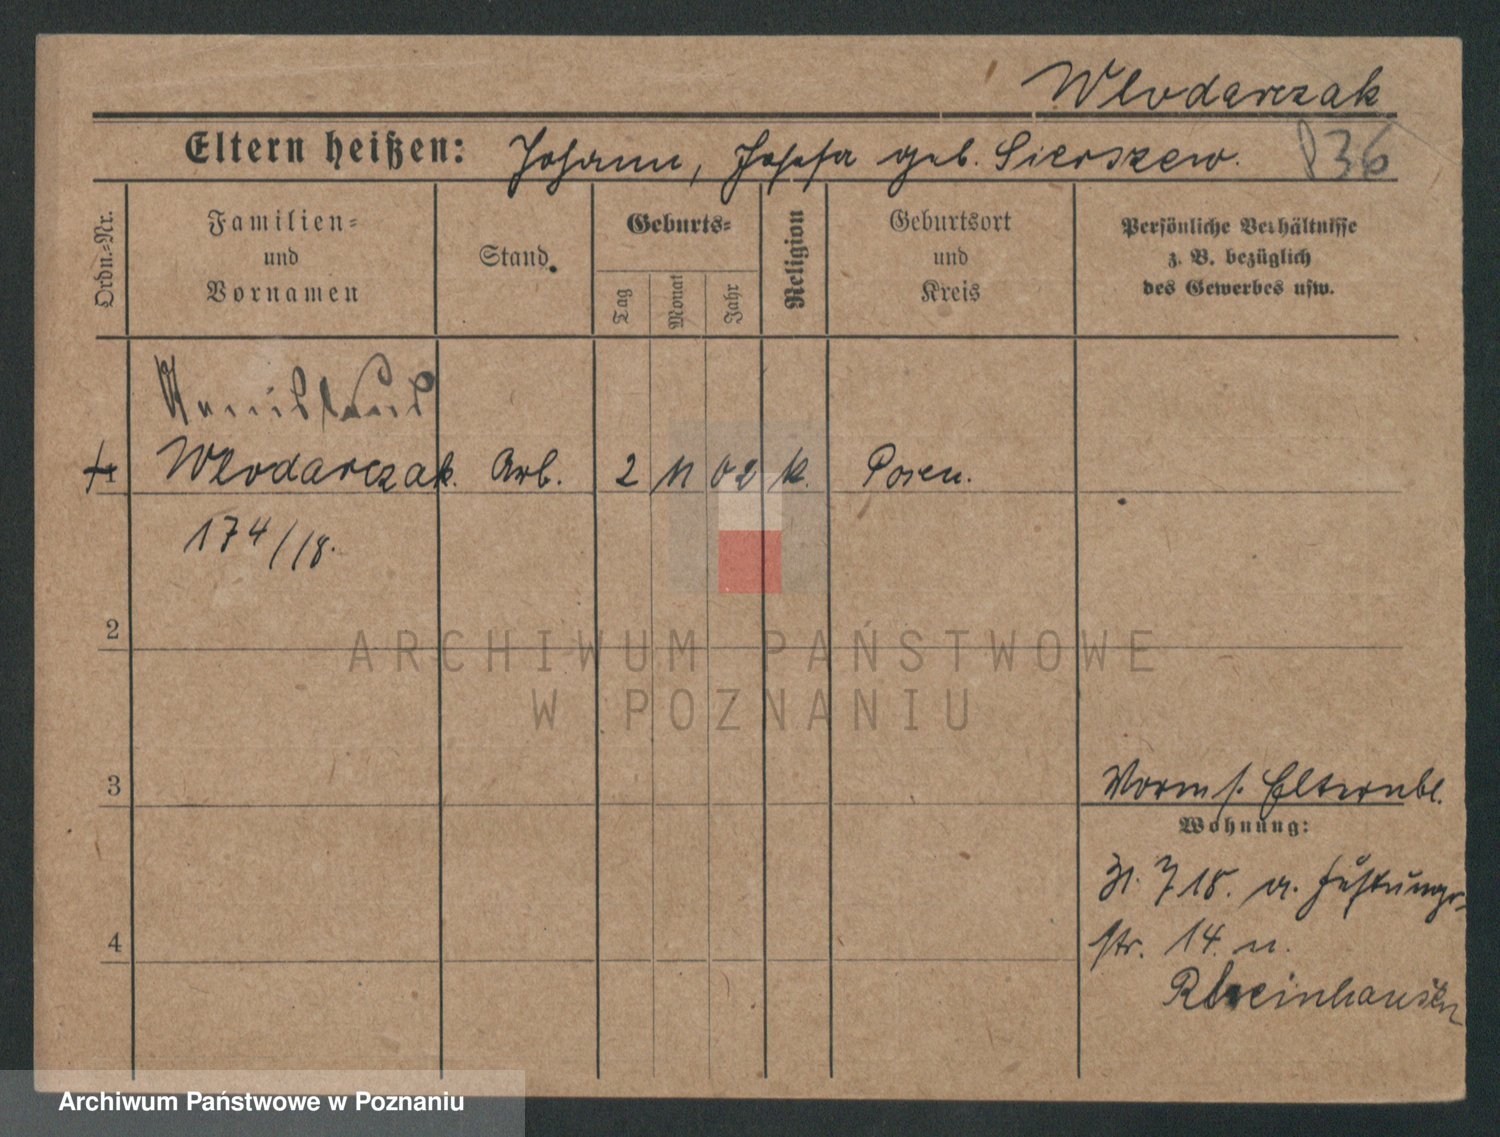 Wlodarczak
Eltern heißen: Johann, Josefa geb. Sierszew.
836
Ordn.-Nr.
Familien-
und
Vornamen
Stand
Geburts-
Tag
Monat
Jahr
Religion
Geburtsort
und
Kreis
Persönliche Verhältnisse
z. B. bezüglich
des Gewerbes usw.
1
Wlodarczak. Arb. 2 11 02 k. Posen.
174/18.
2
ARCHIWUM PAŃSTWOWE
W POZNANIU
3
Vorm s. Elternbl.
Wohnung:
7 18. a. Festungs-
str. 14. n.
Rheinhausen
4
Archiwum Państwowe w Poznaniu